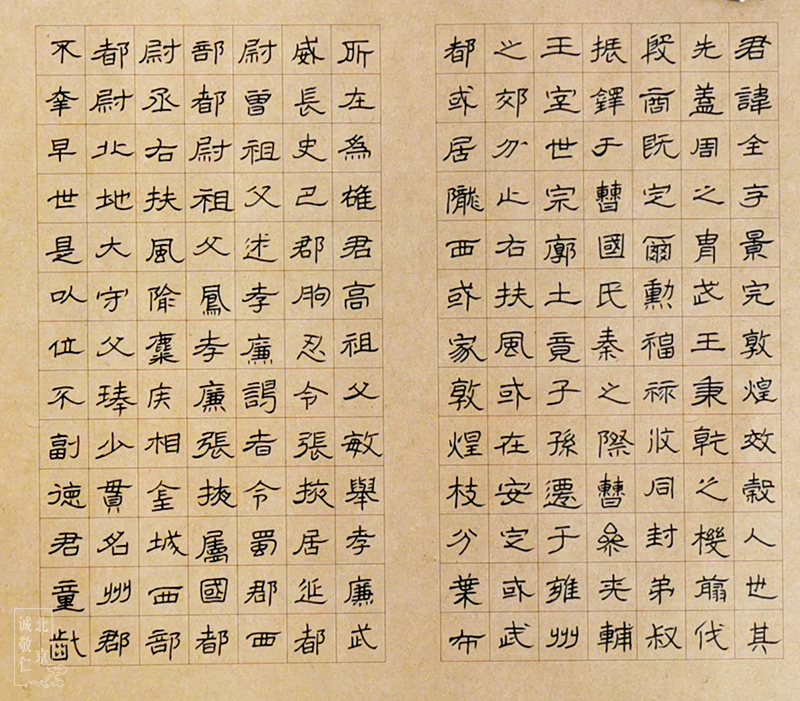 君諱全字景完敦煌效穀人世其
先蓋周之胄武王秉乾之機翦伐
殷商既定爾勳福祿攸同封弟叔
振鐸于曹國氏秦之際曹參夾輔
王室世宗廓土竟子孫遷于雍州
之郊分止右扶風或在安定或武
都或居隴西或家敦煌枝分葉布
所在為雄君高祖父敏舉孝廉武
威長史巴郡朐忍令張掖居延都
尉曾祖父述孝廉謁者令蜀郡西
部都尉祖父鳳孝廉張掖屬國都
尉丞右扶風隃麋侯相金城西部
都尉北地大守父琫少貫名州郡
不幸早世是以位不副德君童齔
北京
诚敬仁